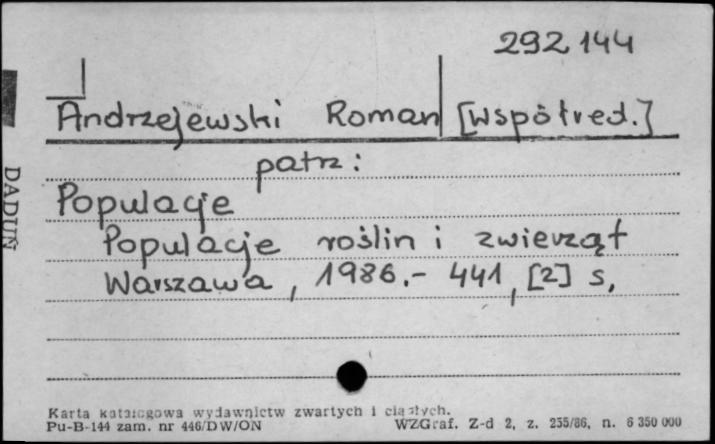 292 144
Andrzejewski Roman [współred.]
patrz:
Populacje
Populacje roślin i zwierząt
Warszawa, 1986.- 441, [2] s.
DADUŃ
Karta katalogowa wydawnictw zwartych i ciągłych.
Pu-B-144 zam. nr 446/DW/ON WZGraf. Z-d 2, z. 255/86, n. 6 350 000